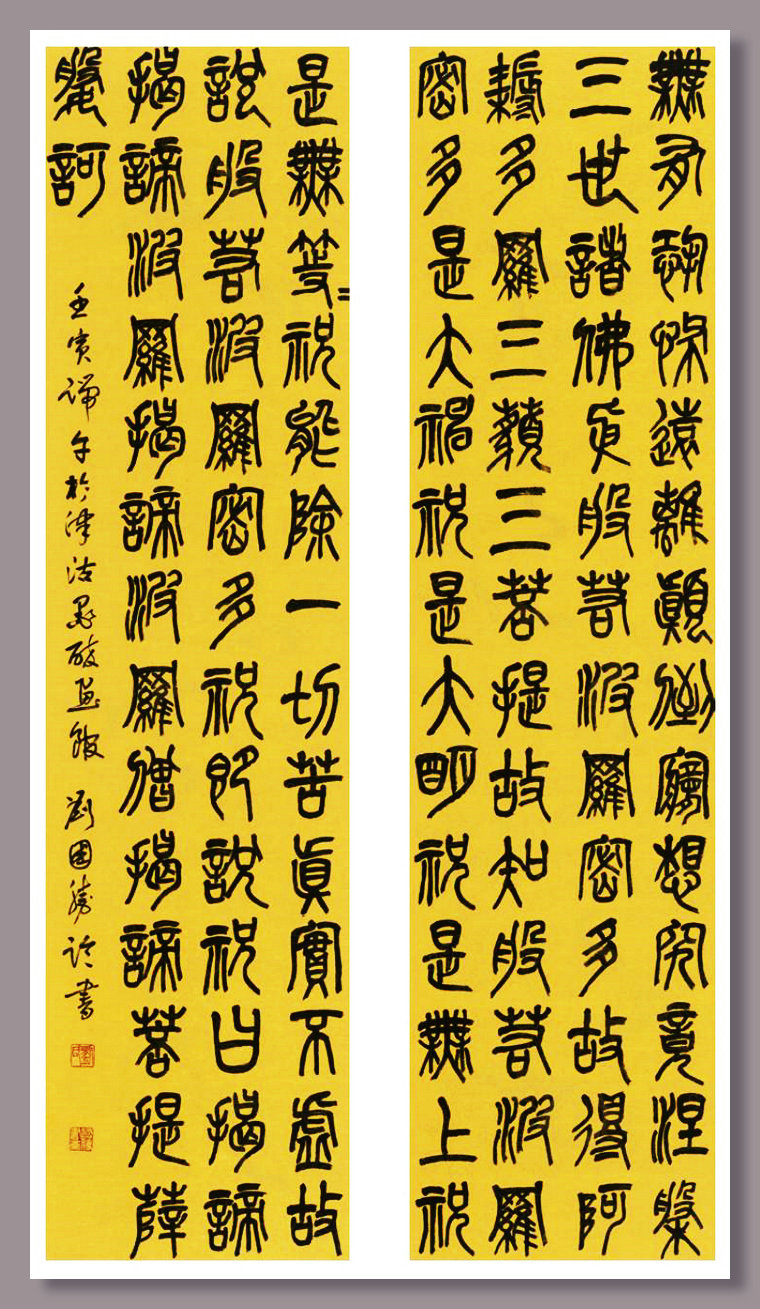 無有恐怖遠離顛倒夢想究竟涅槃
三世諸佛依般若波羅密多故得阿
耨多羅三藐三菩提故知般若波羅
密多是大神祝是大明祝是無上祝
是無等=祝能除一切苦眞實不虛故
說般若波羅密多祝即說祝曰揭諦
揭諦波羅揭諦波羅僧揭諦菩提薩
婆訶
壬寅端午於津沽墨畫館 劉國勝書